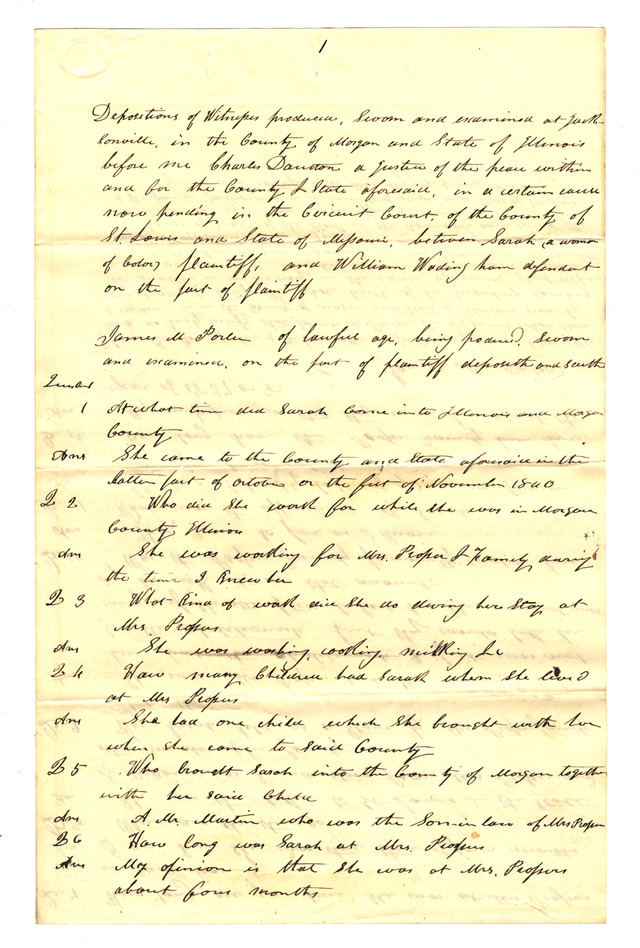 1
Depositions of Witnesses produced, Sworn and examined at Jack
sonville, in the County of Morgan and State of Illinois
before me Charles a Justice of the peace within
and for the County & State aforesaid, in a certain cause
now pending in the Circuit Court of the County of
St. Louis and State of Missouri, between Sarah (a woman
of Color) plaintiff, and William Wadingham defendant
on the part of plaintiff
James M Porter of lawful age, being produced, Sworn
and examined, on the part of plaintiff deposeth and saith
1 At what time did Sarah Come into Illinois and Morgan
County
Ans She came to the County and State aforesaid in the
latter part of october or the first of November 1840
Q 2 Who did She work for while she was in Morgan
County Illinois
Ans She was working for Mrs. & Family during
the time I Knew her
Q 3 What Kind of work did She do during her Stay at
Mrs.
Ans She was washing, cooking, milking &c
Q 4 How many Children had Sarah when She lived
at Mrs
Ans She had one child which She brought with her
when she came to said County
Q 5 Who brought Sarah into the County of Morgan together
with her said Child
Ans A. Mr. Martin who was the Son in law of Mrs
Q 6 How long was Sarah at Mrs.
Ans My opinion is that She was at Mrs.
about four months